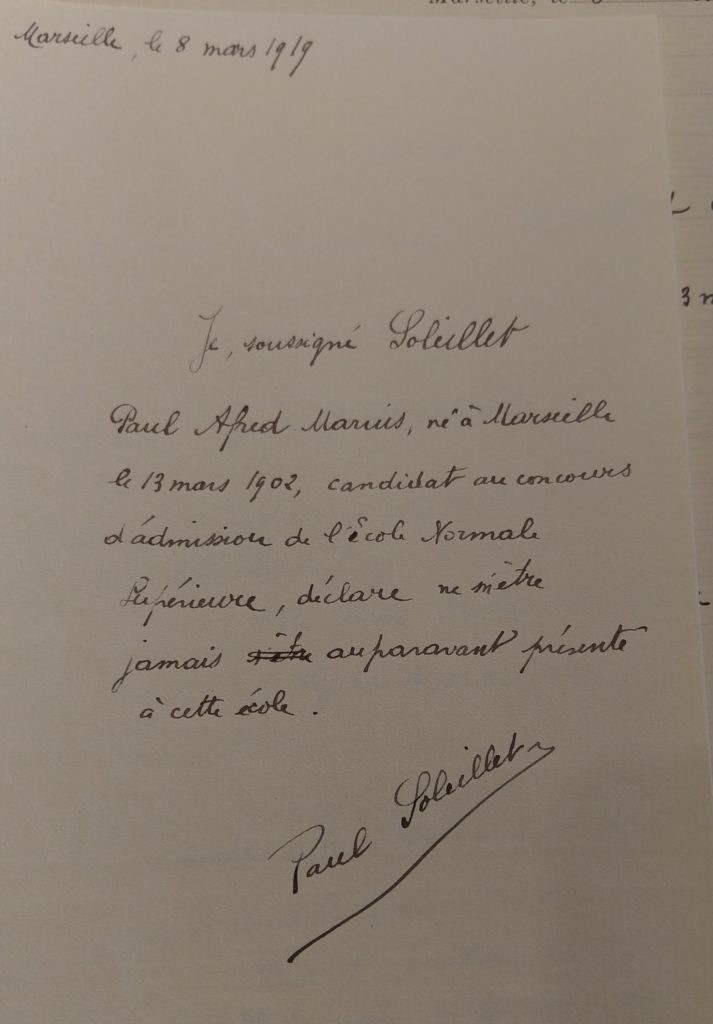 Marseille, le
Marseille, le 8 mars 1919
Je, soussigné Soleillet
Paul Afred Marius, né à Marseille
le 13 mars 1902, candidat au concours
d'admission de l'école Normale
Supérieure, déclare ne m'être
jamais auparavant présenté
à cette école.
Paul Soleillet